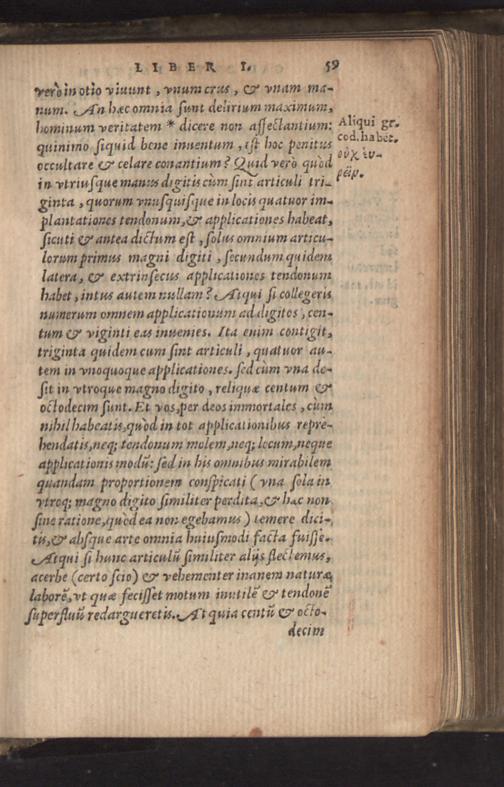 LIBER I. 59
verò in otio viuunt, vnum crus, & vnam ma-
num. An hæc omnia sunt delirium maximum,
hominum veritatem * dicere non affectantium:
quinimo siquid bene inuentum, est hoc penitus
occultare & celare conantium? Quid verò quòd
in vtriusque manus digitis cùm sint articuli tri-
ginta, quorum vnusquisque in locis quatuor im-
plantationes tendonum, & applicationes habeat,
sicuti & antea dictum est, solus omnium articu-
lorum primus magni digiti, secundum quidem
latera, & extrinsecus applicationes tendonum
habet, intus autem nullam? Atqui si collegeris
numerum omnem applicationum ad digitos, cen-
tum & viginti eas inuenies. Ita enim contigit,
triginta quidem cum sint articuli, quatuor au-
tem in vnoquoque applicationes. sed cùm vna de-
sit in vtroque magno digito, reliquæ centum &
octodecim sunt. Et vos, per deos immortales, cùm
nihil habeatis, quòd in tot applicationibus repre-
hendatis, neq; tendonum molem, neq; locum, neque
applicationis modũ: sed in his omnibus mirabilem
quandam proportionem conspicati (vna sola in
vtroq; magno digito similiter perdita, & hac non
sine ratione, quòd ea non egebamus) temere dici-
tis, & absque arte omnia huiusmodi facta fuisse.
Atqui si hunc articulũ similiter alijs flectemus,
acerbe (certo scio) & vehementer inanem naturæ
laborẽ, vt quæ fecisset motum inutilẽ & tendonẽ
superfluũ redargueretis. At quia centũ & octo-
decim
Aliqui gr.
cod. habet.
οὐχ εὑ-
ρεῖν.